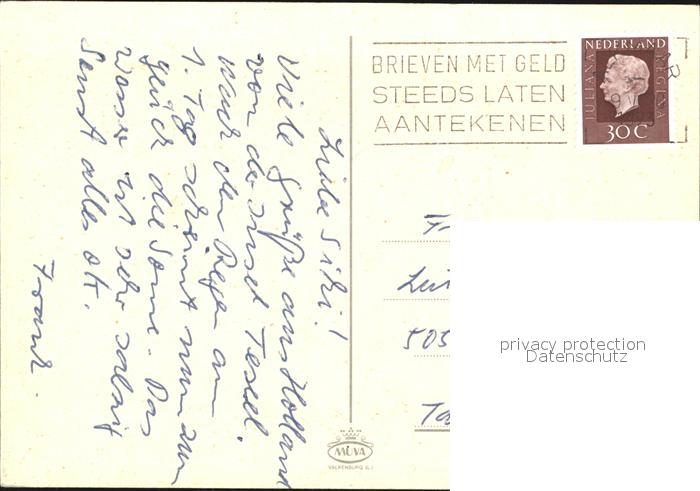 BRIEVEN MET GELD
STEEDS LATEN
AANTEKENEN
NEDERLAND
JULIANA
REGINA
30 C
Liebe Sibi!
Viele Grüße aus Holland
von der Insel Texel.
Nach dem Regen am
1. Tag scheint nun zum
Glück die Sonne. Das
Wasser ist sehr salzig
Sonst alles ok.
Frank.
F
503
privacy protection
Datenschutz
MUVA
VALKENBURG (L.)